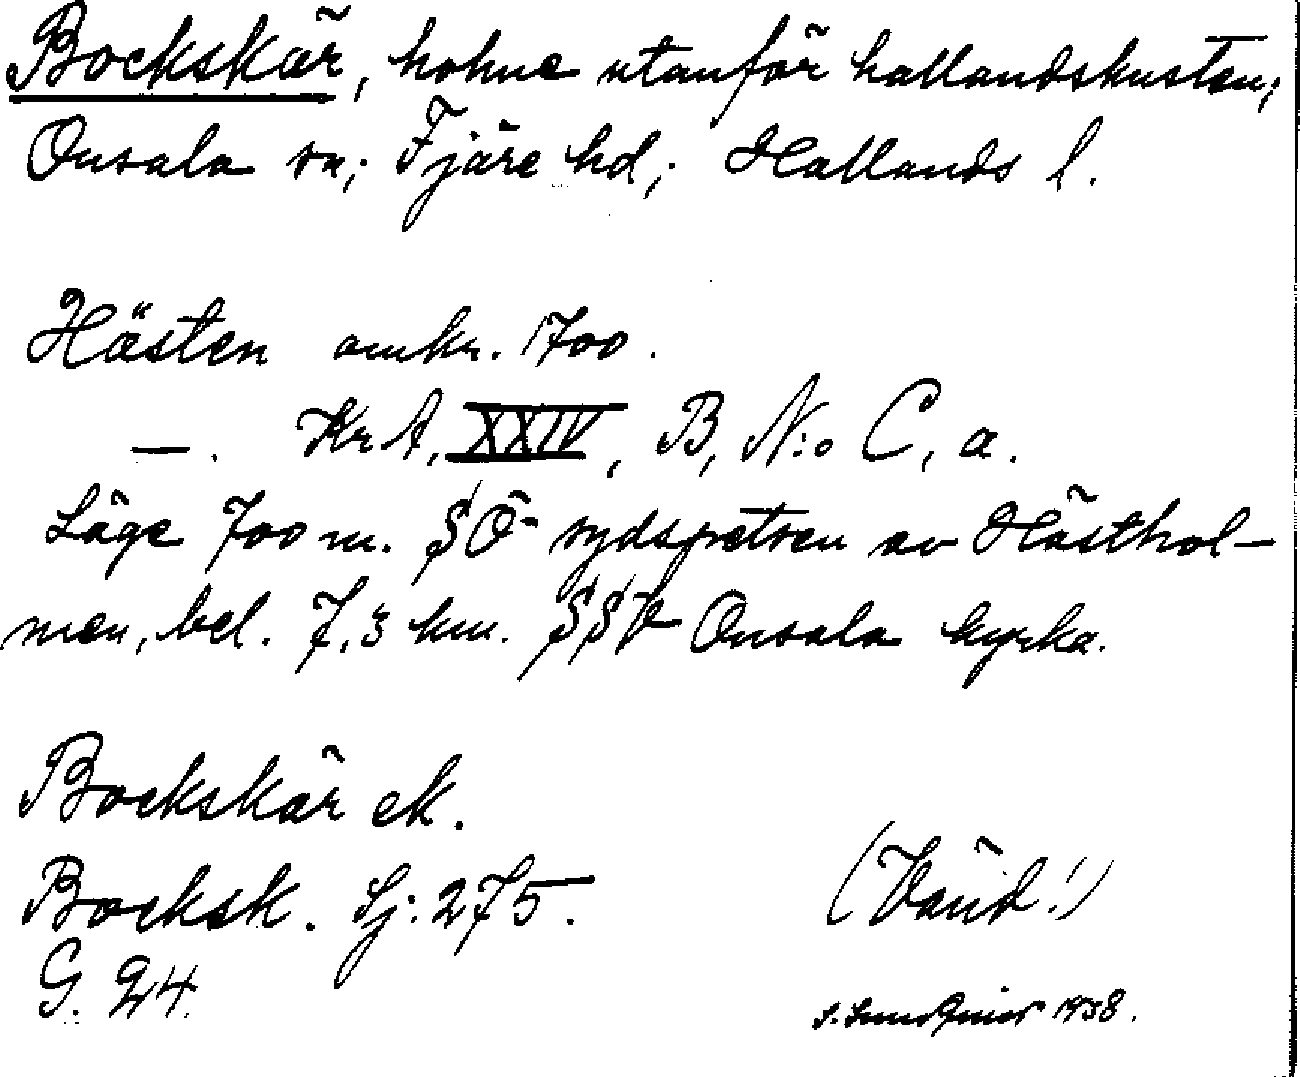 Bockskär, holme utanför hallandskusten,
Onsala sn; Fjäre hd; Hallands l.
Hästen omkr. 1700.
—. KrA, XXIV, B, N:o C, a.
Läge 700 m. SÖ sydspetsen av Hästhol-
men, bel. 7,3 km. SSV Onsala kyrka.
Bockskär ek.
Bocksk. Sj: 275.
G. 24
(Vänd!)
1938.